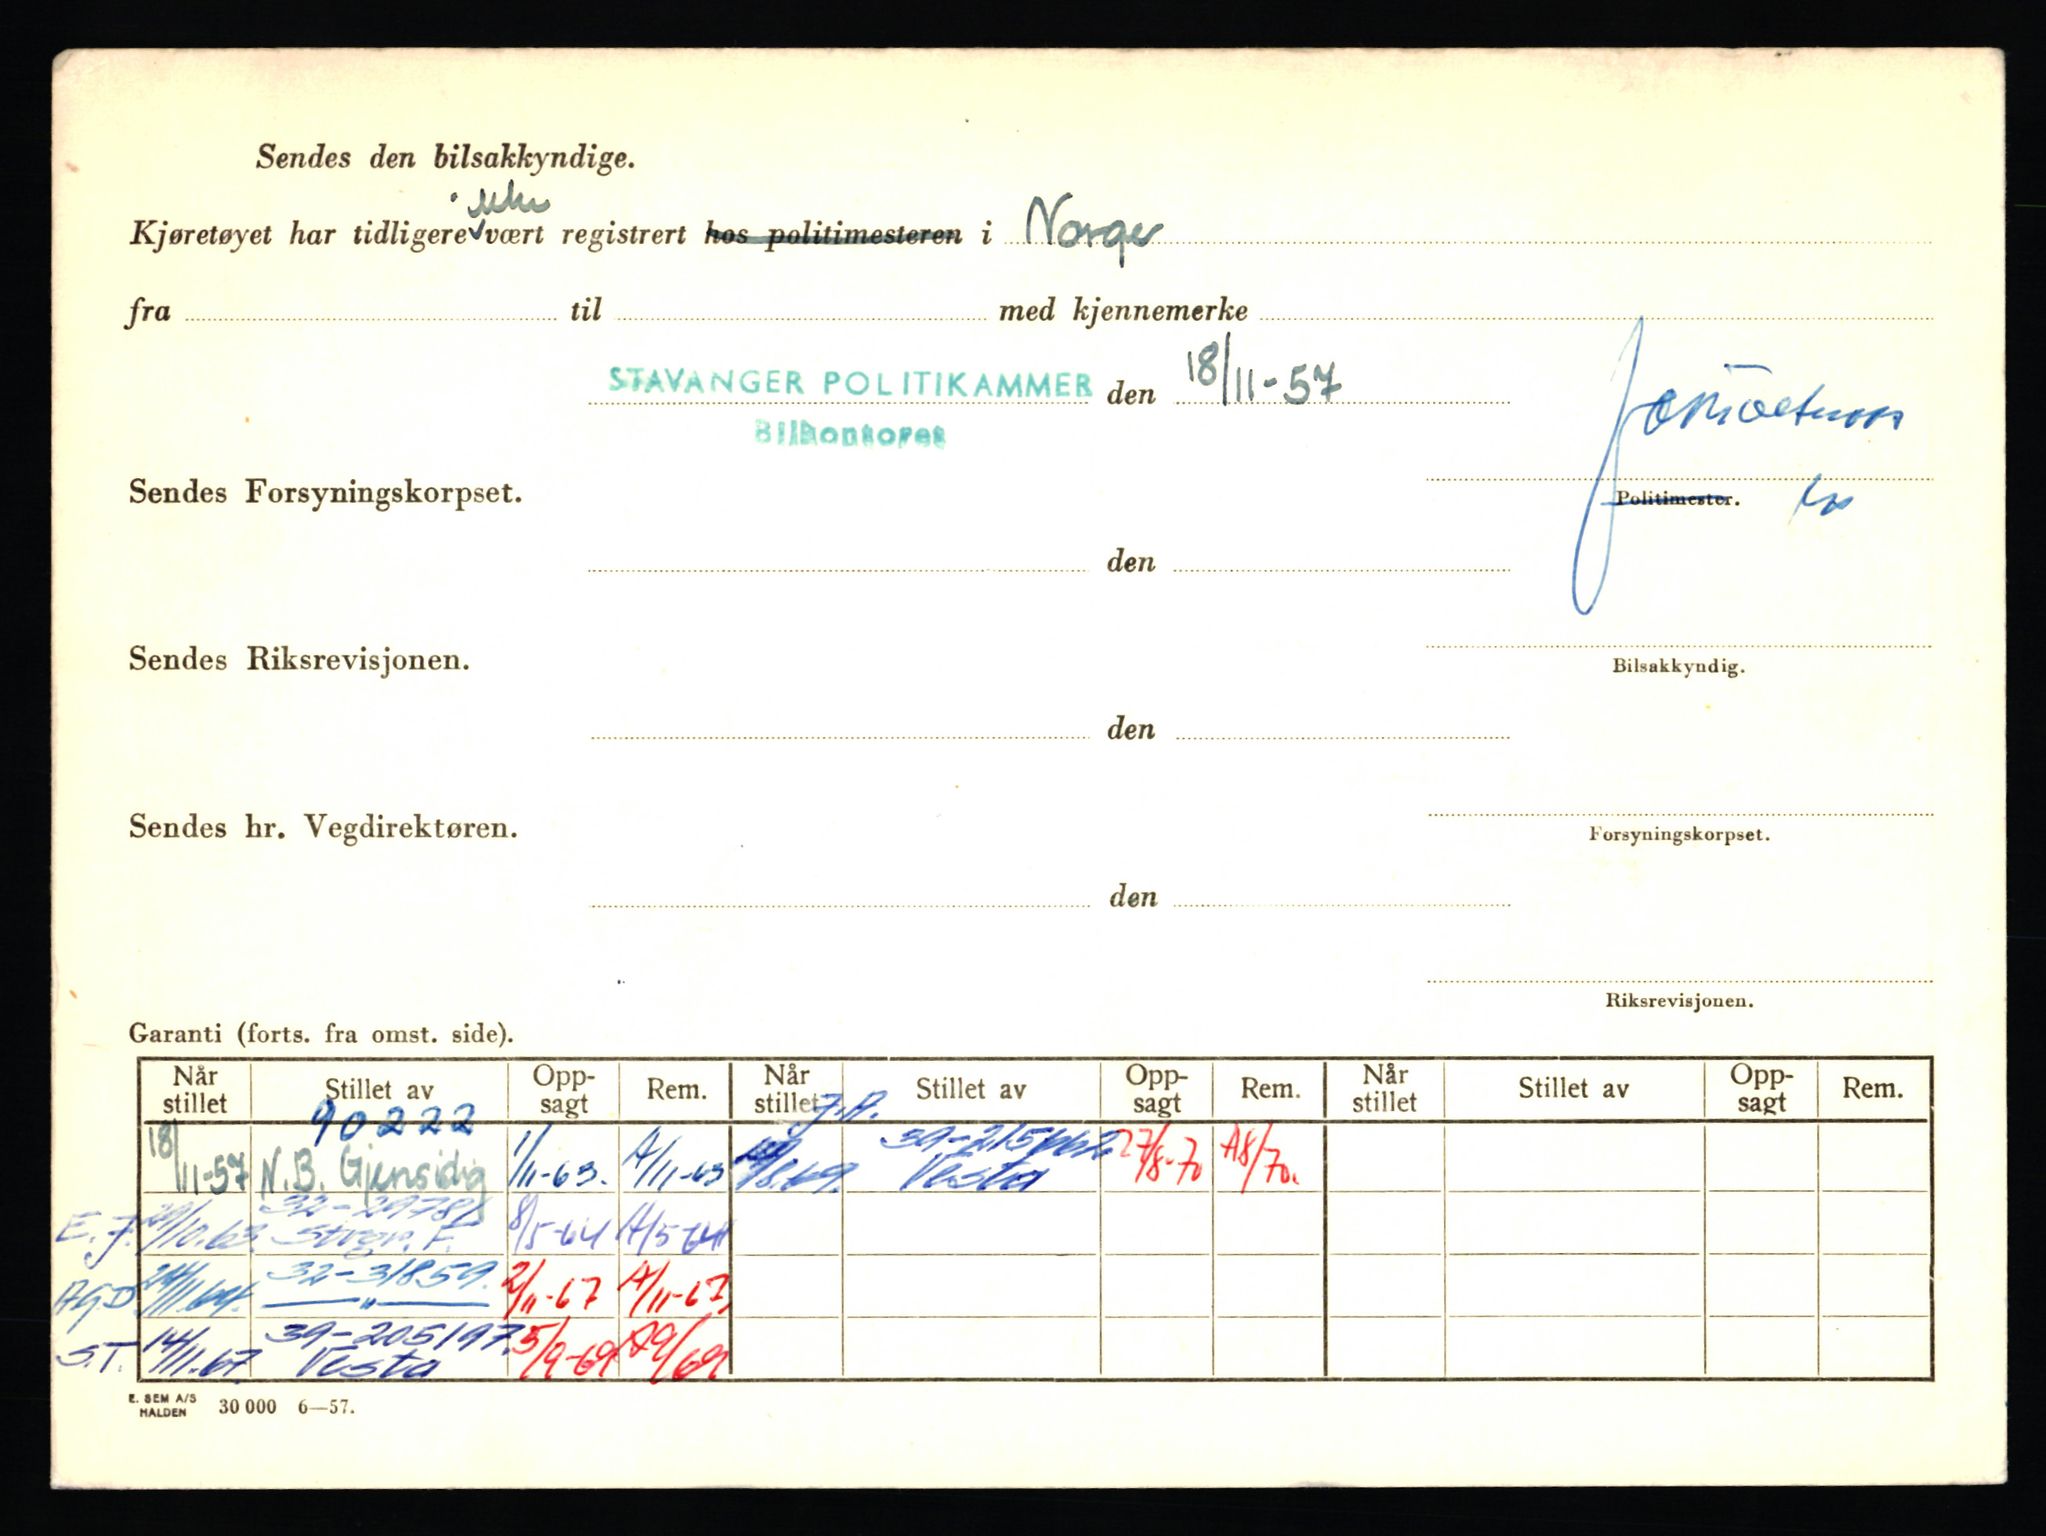 Sendes den bilsakkyndige.
ikke
Kjøretøyet har tidligere vært registrert hos politimesteren i Norge
fra til med kjennemerke
STAVANGER POLITIKAMMER den 18/11-57
Bilkontoret
Sendes Forsyningskorpset.
Politimester.
den
Sendes Riksrevisjonen.
Bilsakkyndig.
den
Sendes hr. Vegdirektøren.
Forsyningskorpset.
den
Riksrevisjonen.
Garanti (forts. fra omst. side).
Når stillet Stillet av Opp-sagt Rem. Når stillet Stillet av Opp-sagt Rem. Når stillet Stillet av Opp-sagt Rem.
90222 J.A.
18/11-57 N.B. Gjensidig 1/11-63. A/11-63 Vesta 27/8-70 A8/70.
E.J. /10.63 Stvgr. F. 8/5-64 A/5-64
AGD 24/11.64. 32-31859. —"— 2/11-67 A/11-67
S.T. 14/11.67 39-205197. Vesta 5/9-69 A9/69
E. SEM A/S HALDEN 30 000 6—57.